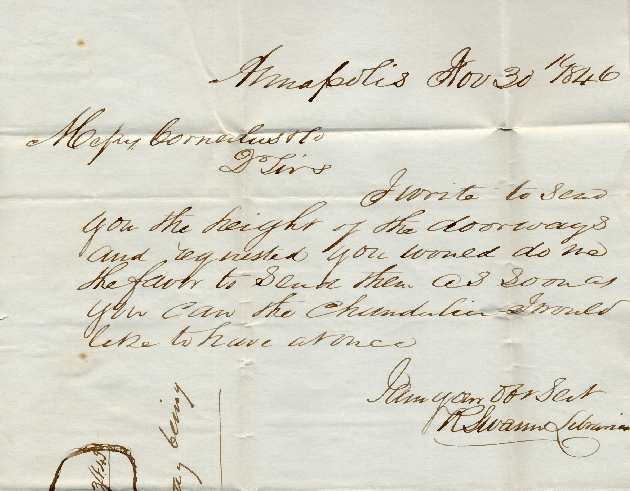 Annapolis Nov 30th 1846
Messrs Cornelius & Co
Dr Sirs
I write to send
you the height of the doorways
and requested you would do me
the favor to send them as soon as
you can the chandelier I would
like to have at once
I am your Obt Sevt
R Swann Librarian
being